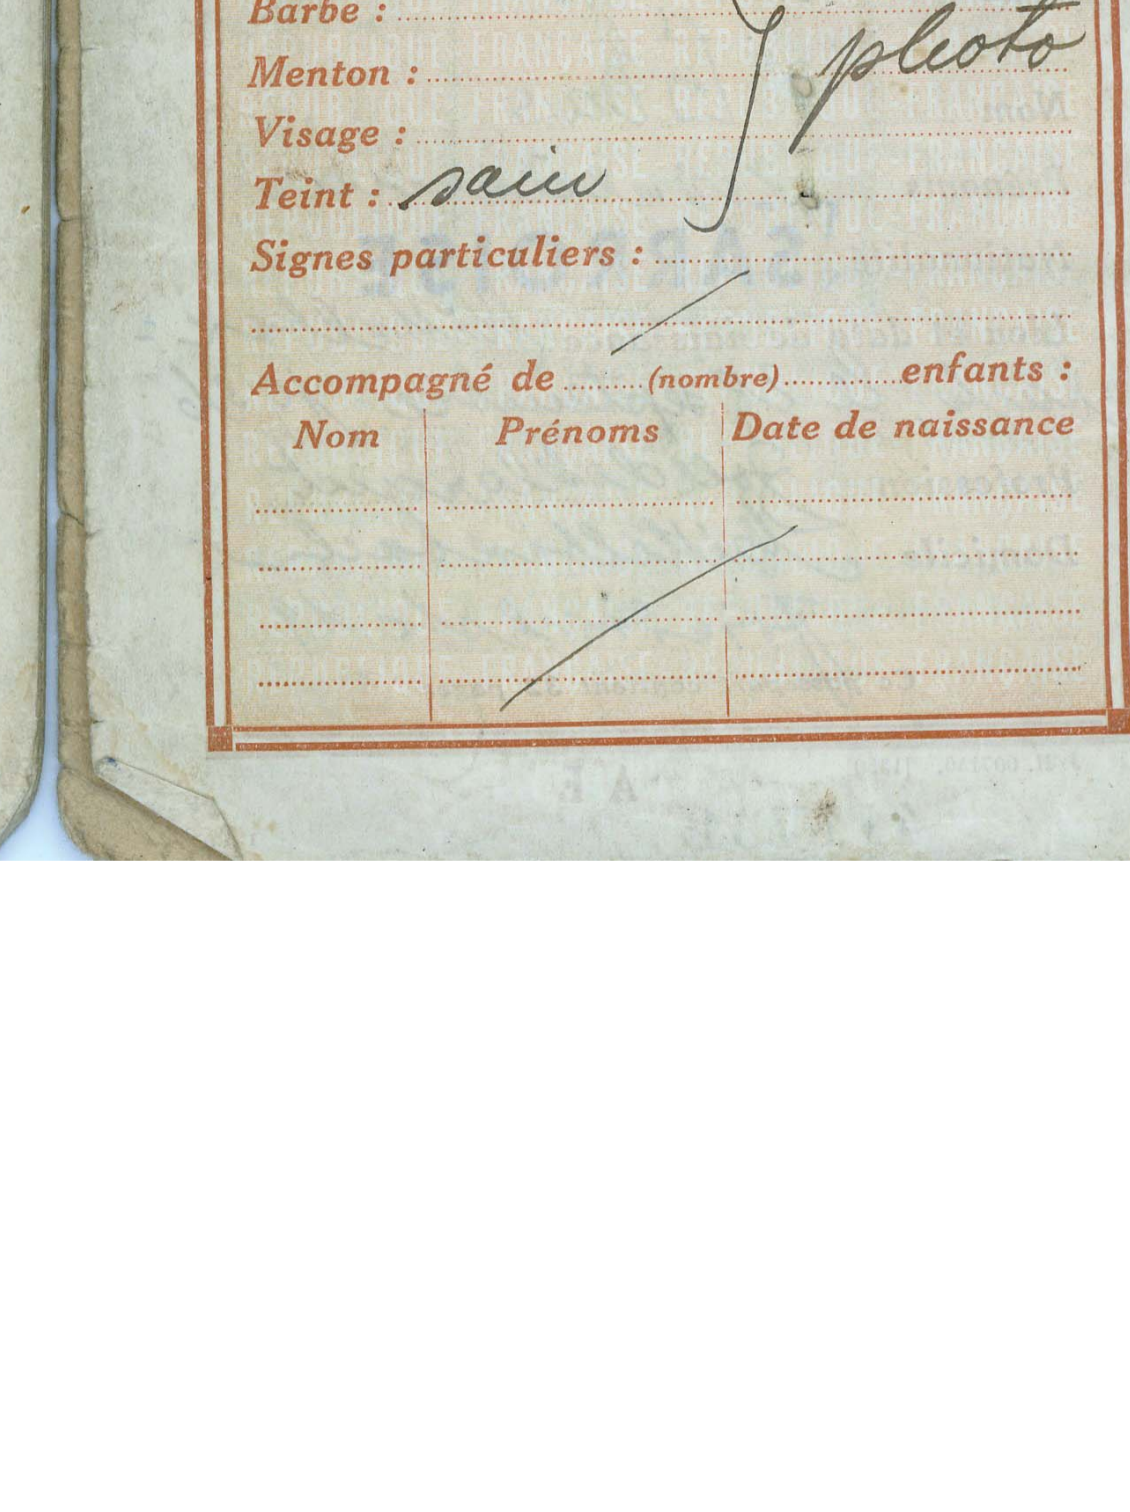 Barbe :
photo
Menton :
Visage :
Teint : sain
Signes particuliers :
Accompagné de (nombre) enfants :
Nom Prénoms Date de naissance